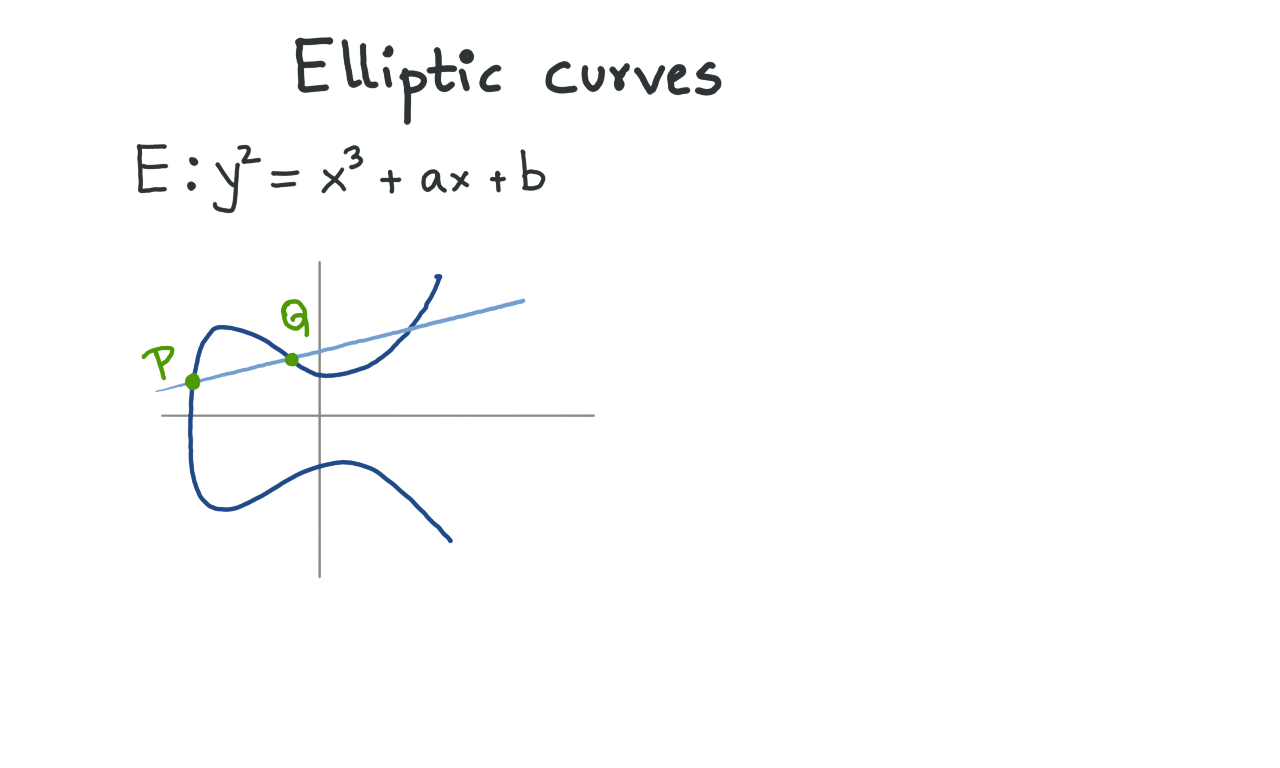 Elliptic curves
E: y² = x³ + ax + b
Q
P